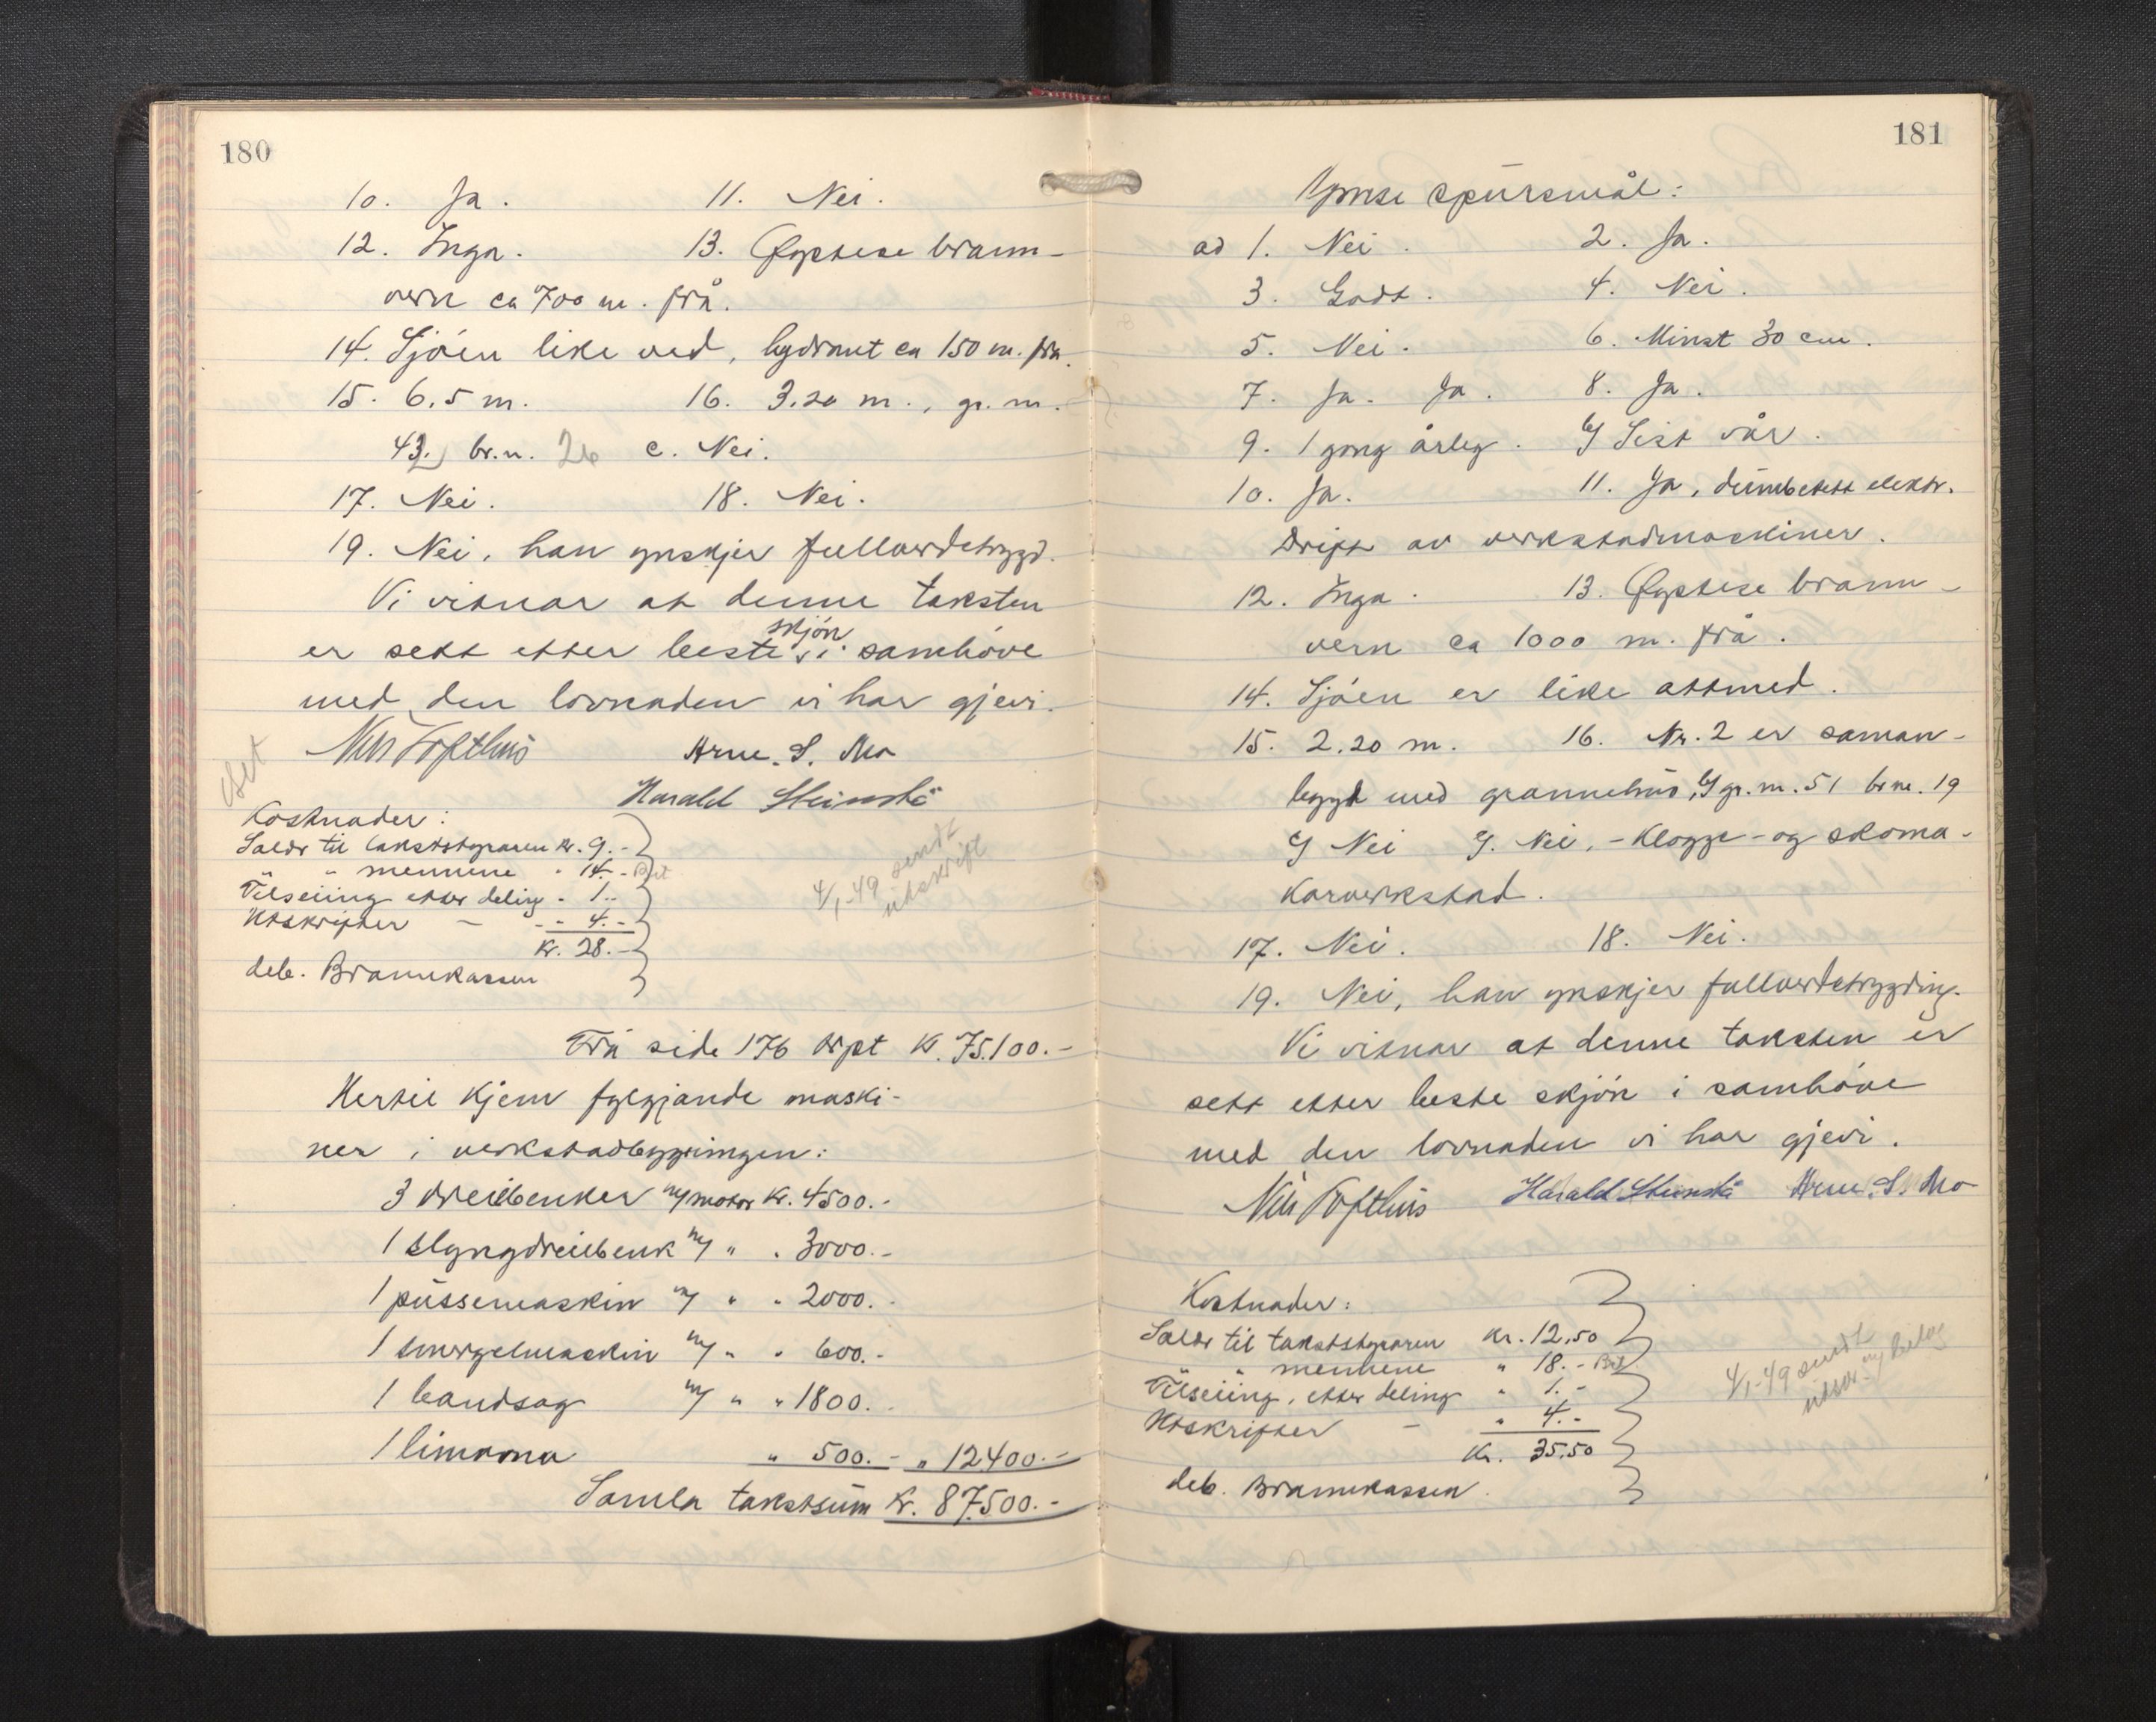 180
10. Ja. 11. Nei.
12. Inga. 13. Øystese brann-
vern ca 700 m. frå.
14. Sjøen like ved, hydrant ca 150 m. frå.
15. 6.5 m. 16. 3.20 m., gr. nr.
43, br.n. 26 c. Nei.
17. Nei. 18. Nei.
19. Nei, han ynskjer fullverdetrygd.
Vi vitnar at denne taksten
er sett etter beste skjön i samhöve
med den lovnaden vi har gjevi.
Nils Tofthus Arne. S. Mo
Harald Steinstö
Kostnader:
Salær til takststyraren kr. 9.-
" " mennene " 14.- Bet
Tilseiing etter deling " 1.-
Utskrifter - " 4.-
Kr. 28.-
deb. Brannkassen
4/1-49 sendt
utskrift
Frå side 176 Orpt kr. 75.100.-
Hertil kjem fylgjande maski-
ner i verkstadbygningen:
3 dreiebenker m/motor kr. 4500.-
1 slyngdreiebenk m/ " " 3000.-
1 pussemaskin m/ " " 2000.-
1 smergelmaskin m/ " " 600.-
1 bandsag m/ " " 1800.-
1 limkoma " 500.- " 12400.-
Samla takstsum kr. 87.500.-
181
Ymse spursmål:
ad 1. Nei. 2. Ja.
3. Godt. 4. Nei.
5. Nei. 6. Minst 30 cm.
7. Ja. Ja. 8. Ja.
9. 1 gong årleg. b/ Sist vår.
10. Ja. 11. Ja, elektr.
Drift av verkstadmaskiner.
12. Inga. 13. Øystese brann-
vern ca 1000 m. frå.
14. Sjøen er like attmed.
15. 2.20 m. 16. Nr. 2 er saman-
bygd med grannehus, b/ gr. nr. 51 br nr. 19
c/ Nei Nei, - Klogge- og skoma-
karverkstad.
17. Nei. 18. Nei.
19. Nei, han ynskjer fullverdetrygding.
Vi vitnar at denne taksten er
sett etter beste skjön i samhöve
med den lovnaden vi har gjevi.
Nils Tofthus Harald Steinstö Arne. S. Mo
Kostnader:
Salær til takststyraren kr. 12.50
" mennene " 18.- Bet
Tilseiing, etter deling " 1.-
Utskrifter - " 4.-
Kr. 35.50
deb. Brannkassen.
4/1-49 sendt